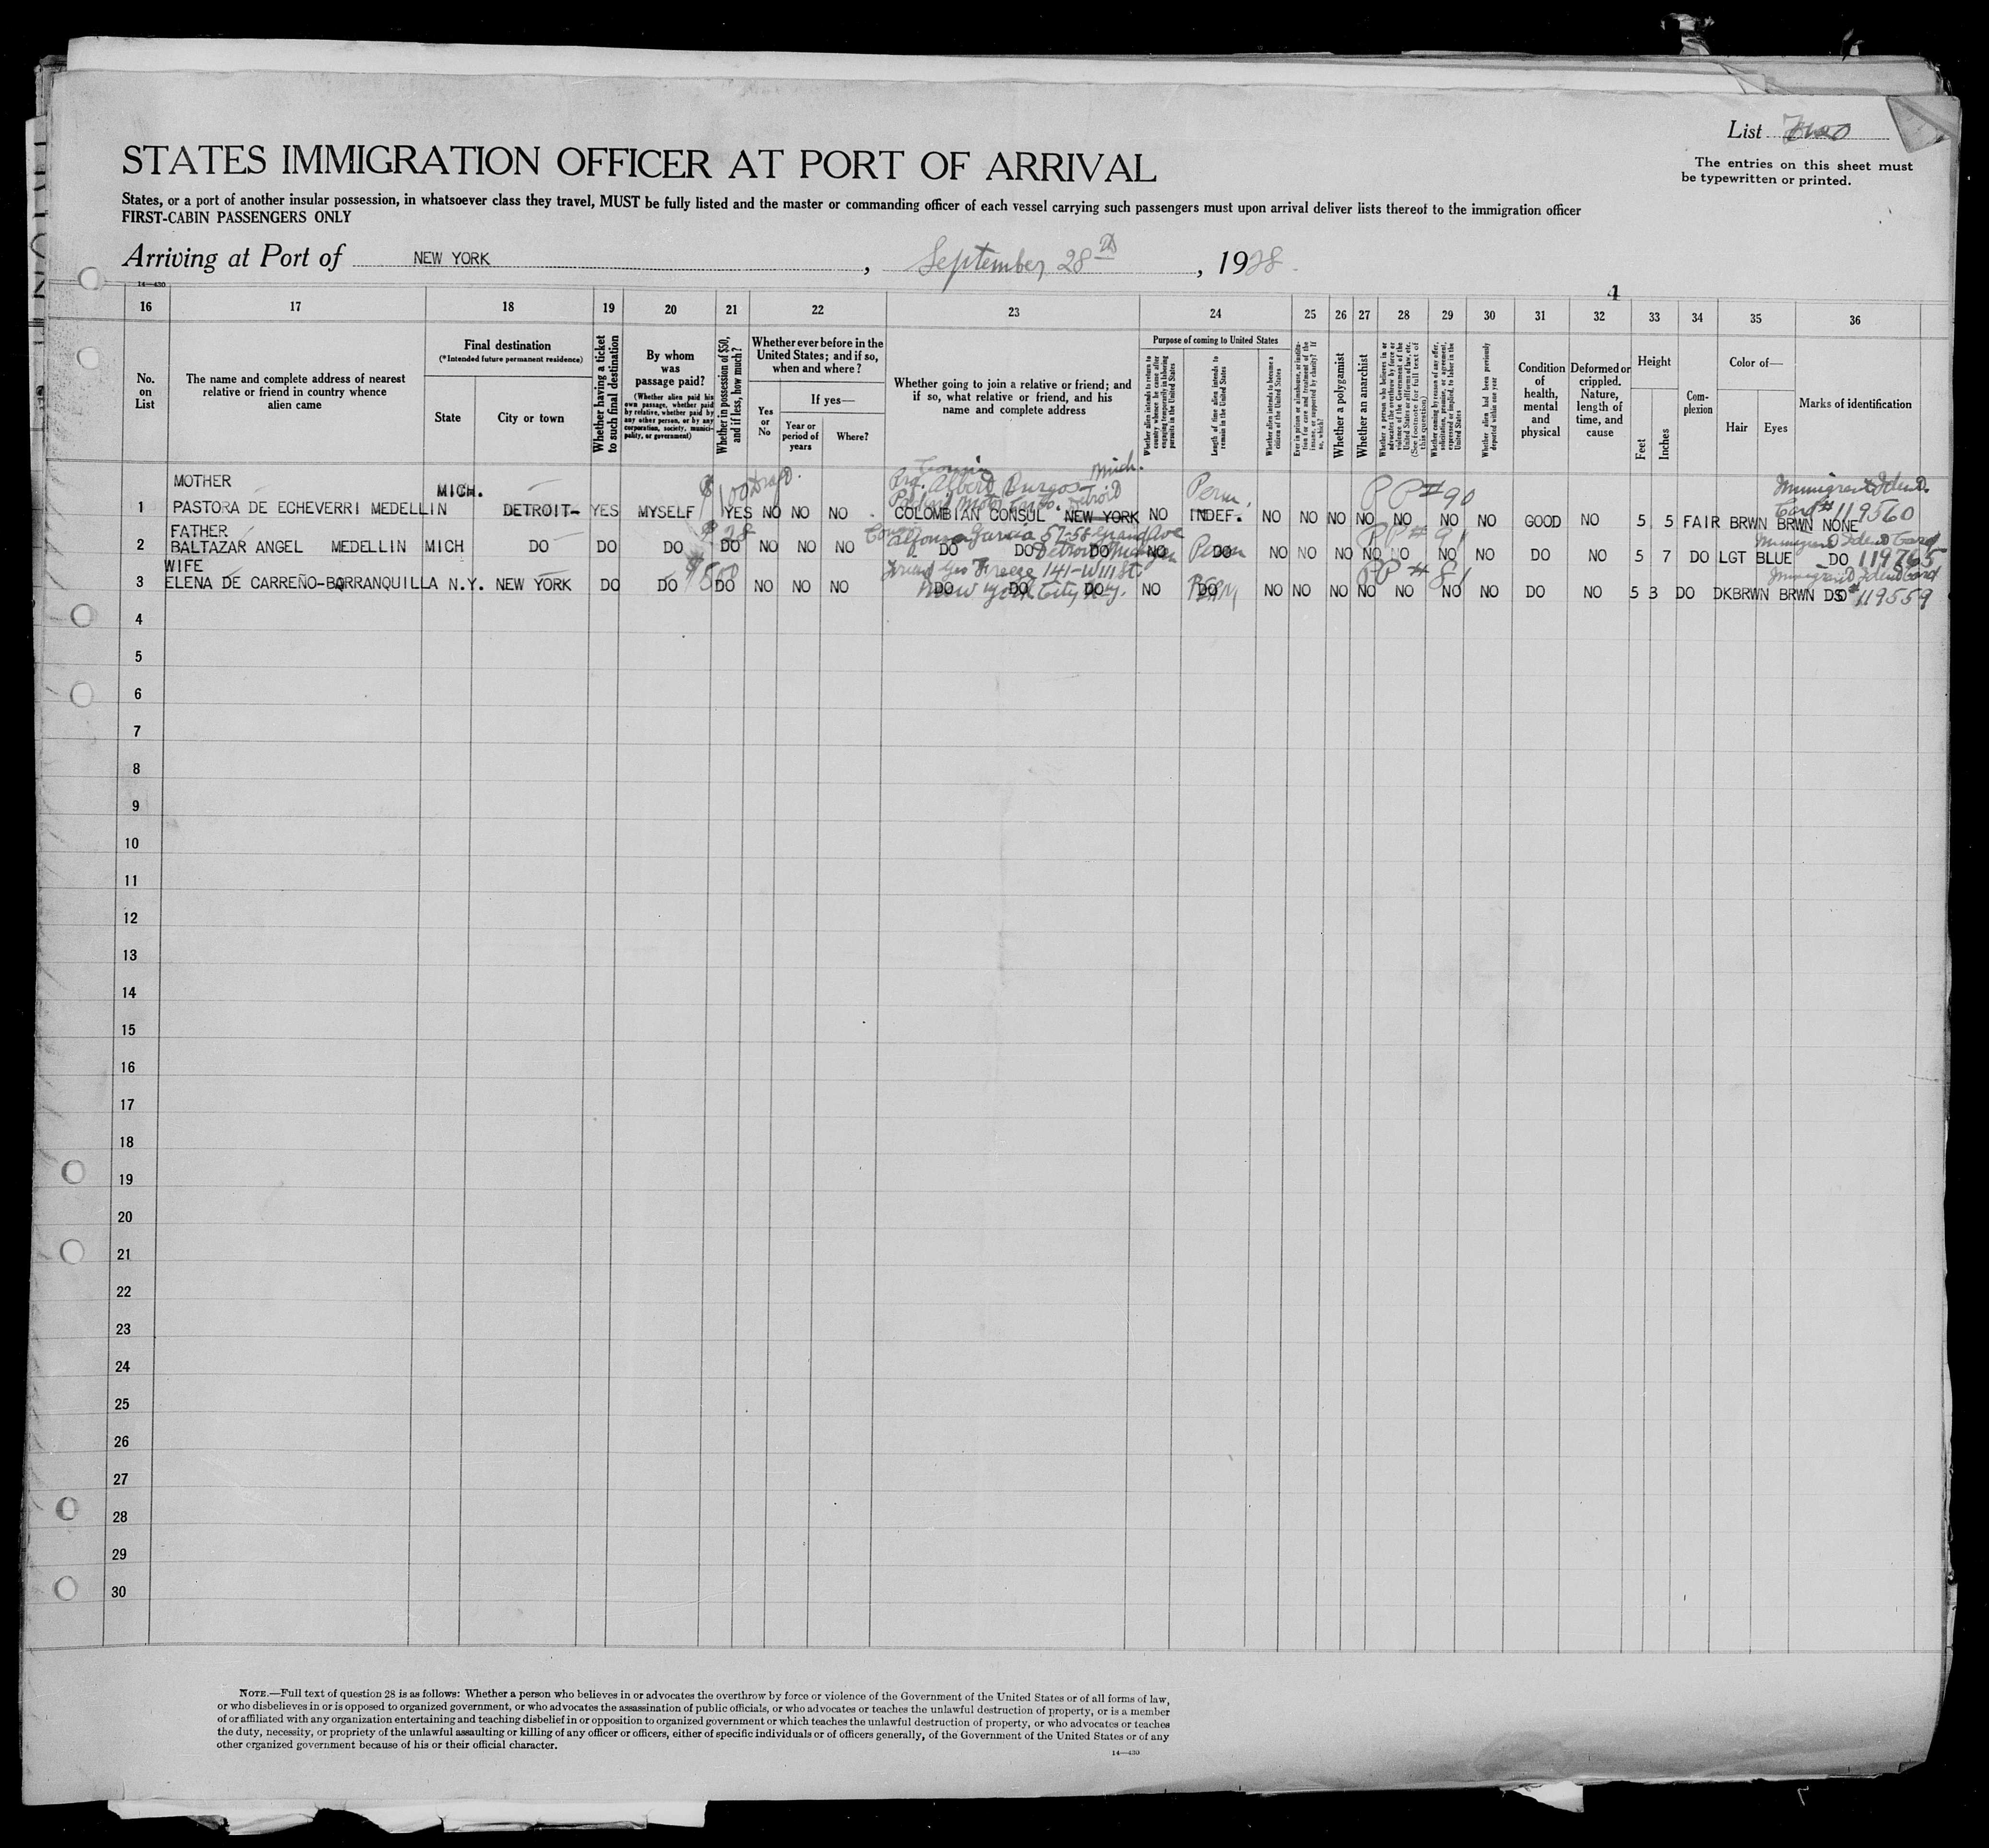 List Two
STATES IMMIGRATION OFFICER AT PORT OF ARRIVAL
The entries on this sheet must
be typewritten or printed.
States, or a port of another insular possession, in whatsoever class they travel, MUST be fully listed and the master or commanding officer of each vessel carrying such passengers must upon arrival deliver lists thereof to the immigration officer
FIRST-CABIN PASSENGERS ONLY
Arriving at Port of NEW YORK, September 28th, 1928.
14—430
16 17 18 19 20 21 22 23 24 25 26 27 28 29 30 31 32 33 34 35 36
No. on List
The name and complete address of nearest relative or friend in country whence alien came
Final destination
(*Intended future permanent residence)
State
City or town
Whether having a ticket to such final destination
By whom was passage paid?
(Whether alien paid his own passage, whether paid by relative, whether paid by any other person, or by any corporation, society, municipality, or government)
Whether in possession of $50, and if less, how much?
Whether ever before in the United States; and if so, when and where?
Yes or No
If yes—
Year or period of years
Where?
Whether going to join a relative or friend; and if so, what relative or friend, and his name and complete address
Purpose of coming to United States
Whether alien intends to return to country whence he came after engaging temporarily in laboring pursuits in the United States
Length of time alien intends to remain in the United States
Whether alien intends to become a citizen of the United States
Ever in prison or almshouse, or institution for care and treatment of the insane, or supported by charity? If so, which?
Whether a polygamist
Whether an anarchist
Whether a person who believes in or advocates the overthrow by force or violence of the Government of the United States or all forms of law, etc. (See footnote for full text of this question)
Whether coming by reason of any offer, solicitation, promise, or agreement, expressed or implied, to labor in the United States
Whether alien had been previously deported within one year
Condition of health, mental and physical
Deformed or crippled. Nature, length of time, and cause
Height
Feet
Inches
Complexion
Color of—
Hair
Eyes
Marks of identification
MOTHER
Cousin Mich.
Albert Burgos
Immigrant Ident.
1 PASTORA DE ECHEVERRI MEDELLIN MICH. DETROIT- YES MYSELF $100 Draft. YES NO NO NO COLOMBIAN CONSUL NEW YORK NO Perm. INDEF. NO NO NO NO PP#90 NO NO NO GOOD NO 5 5 FAIR BRWN BRWN NONE Card # 119560
FATHER
Alfonso Garcia 57-58 Grand Ave
Immigrant Ident Card
2 BALTAZAR ANGEL MEDELLIN MICH DO DO DO $38 DO NO NO NO DO DO DO Detroit Michigan NO DO Perm NO NO NO NO PP# 91 NO NO NO DO NO 5 7 DO LGT BLUE DO 119765
WIFE
Friend Geo Freeze 141-W 111 St.
Immigrant Ident Card
3 ELENA DE CARREÑO-BARRANQUILLA N.Y. NEW YORK DO DO $500 DO NO NO NO DO DO DO New York City N.Y. NO DO PERM NO NO NO NO PP # 81 NO NO NO DO NO 5 3 DO DKBRWN BRWN DO # 119559
4
5
6
7
8
9
10
11
12
13
14
15
16
17
18
19
20
21
22
23
24
25
26
27
28
29
30
NOTE.—Full text of question 28 is as follows: Whether a person who believes in or advocates the overthrow by force or violence of the Government of the United States or of all forms of law,
or who disbelieves in or is opposed to organized government, or who advocates the assassination of public officials, or who advocates or teaches the unlawful destruction of property, or is a member
of or affiliated with any organization entertaining and teaching disbelief in or opposition to organized government or which teaches the unlawful destruction of property, or who advocates or teaches
the duty, necessity, or propriety of the unlawful assaulting or killing of any officer or officers, either of specific individuals or of officers generally, of the Government of the United States or of any
other organized government because of his or their official character.
14—430